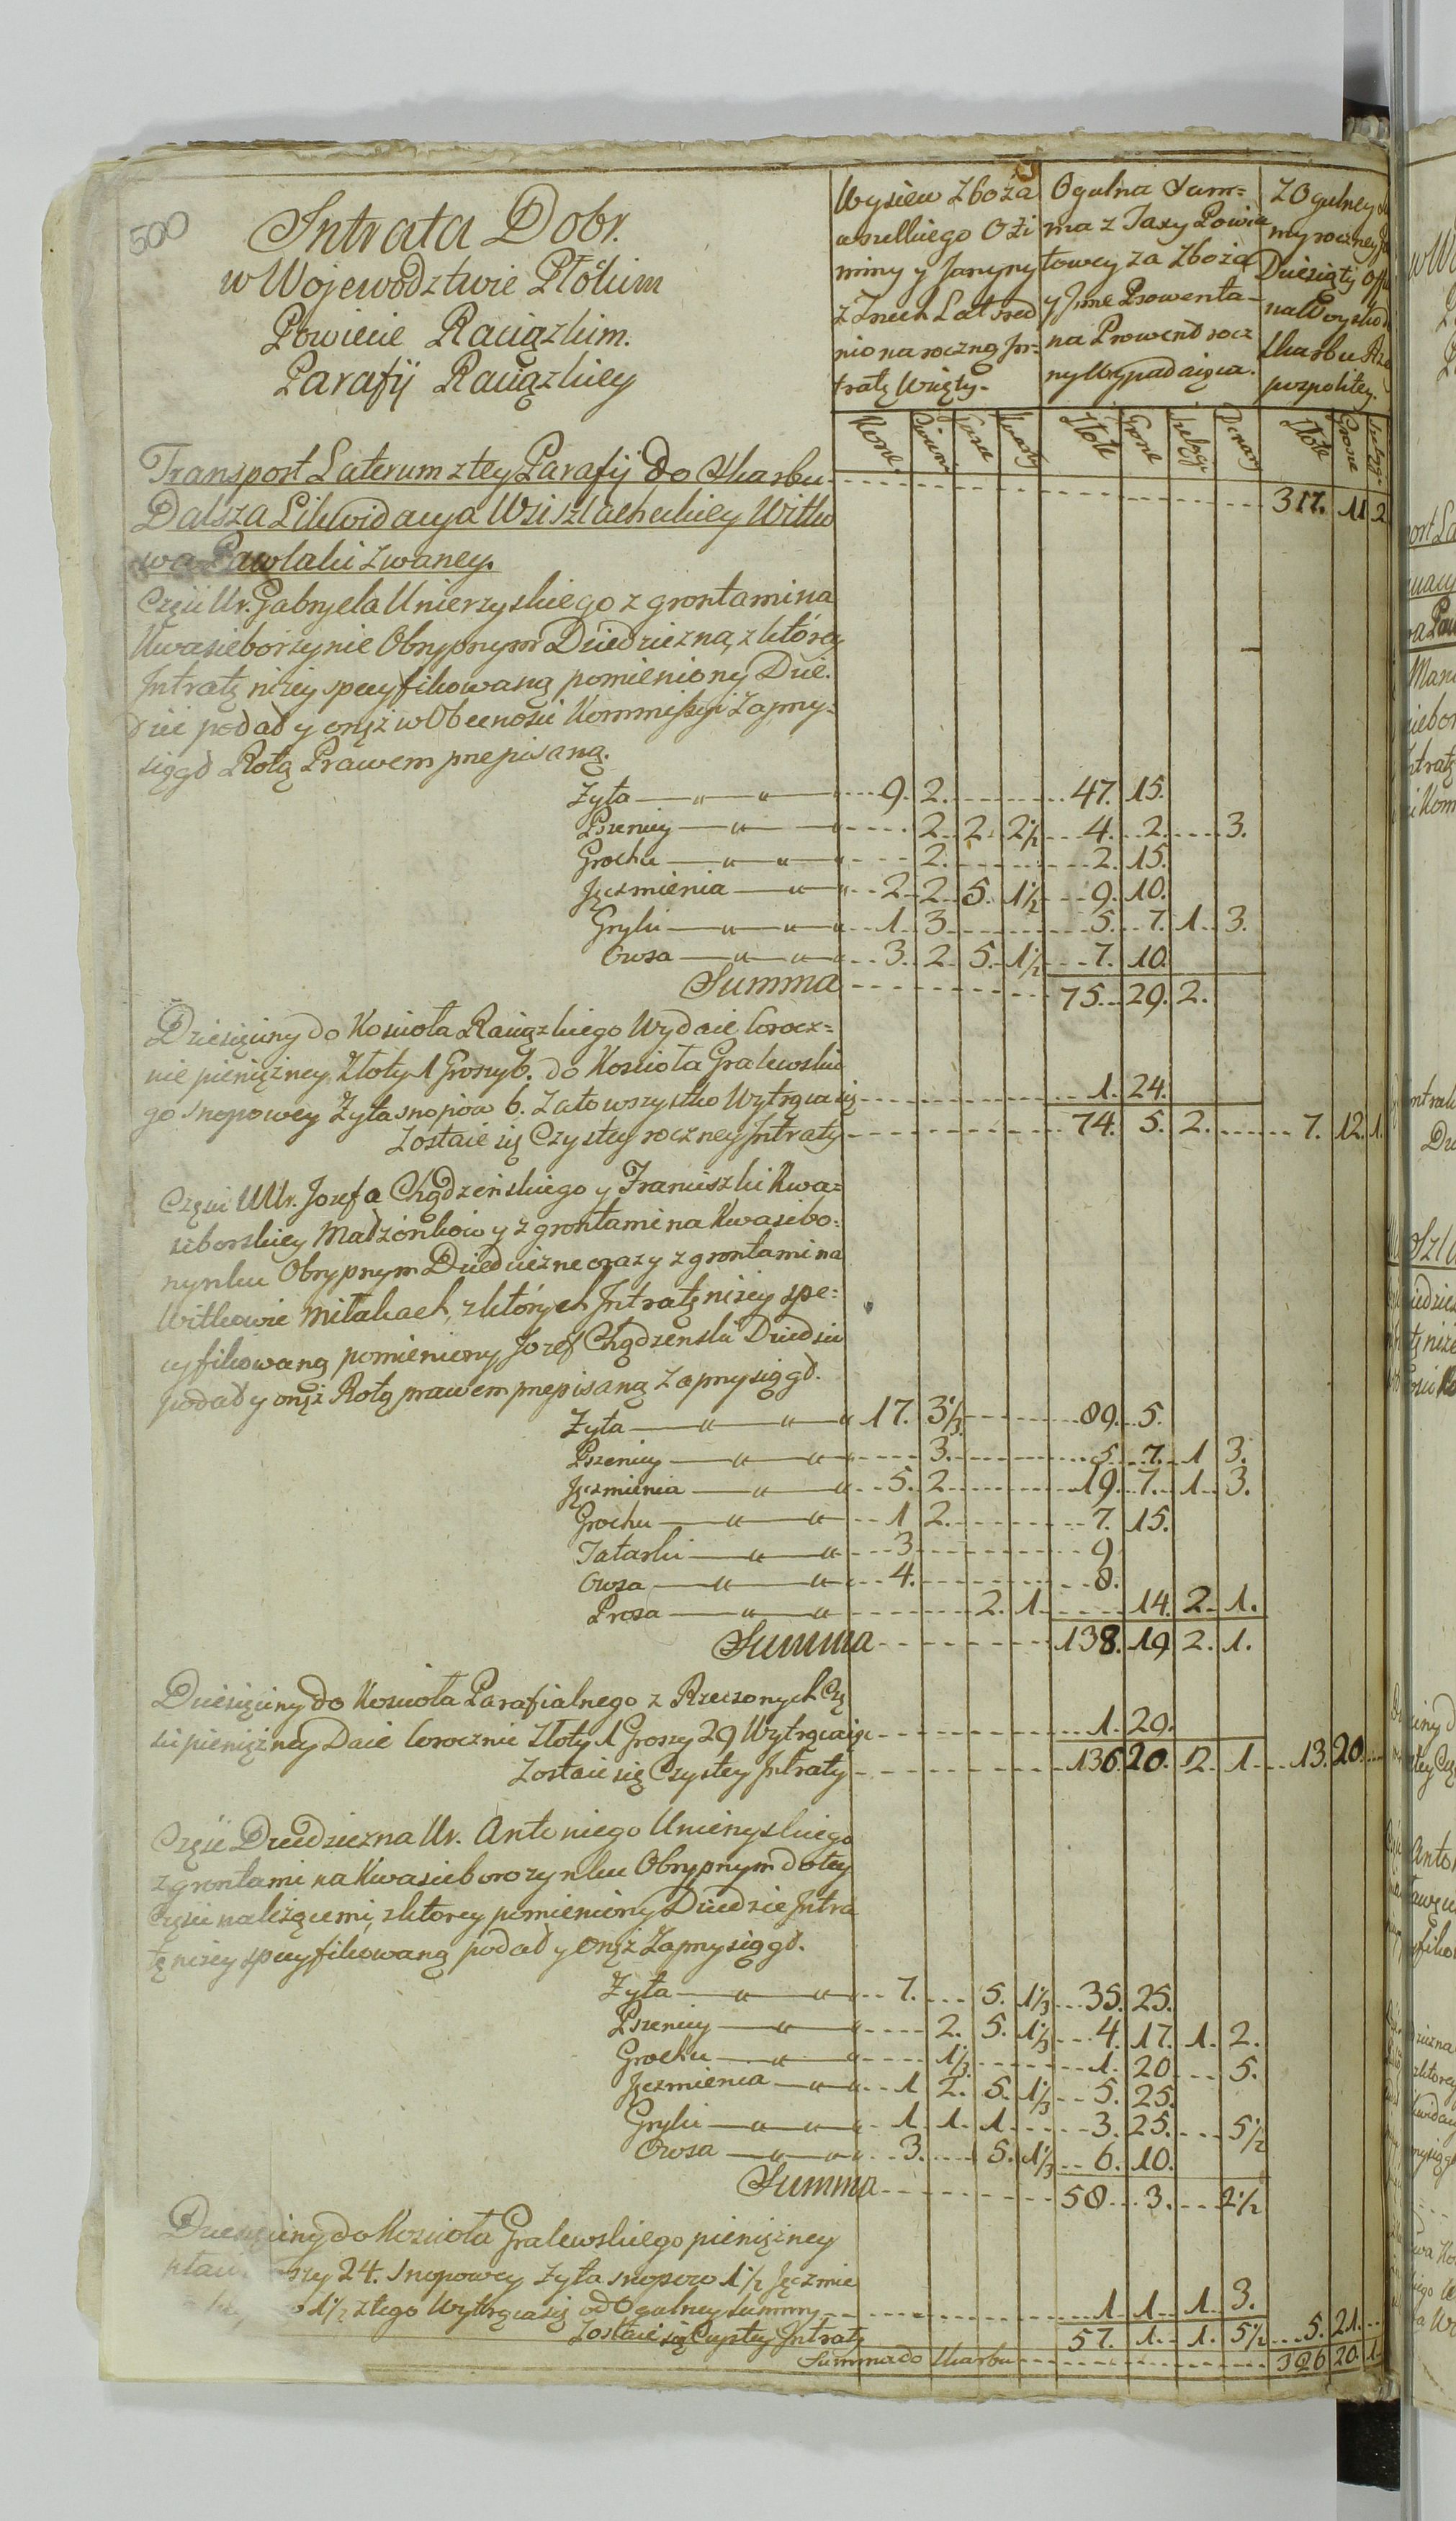 500
Intrata Dobr.
w Wojewodztwie Płockim
Powiecie Raciązkim.
Parafij Raciązkiey
Wysiew Zboża
wszelkiego Ozi
miny y Jarzyny
z Trzech Lat sred
nio na roczną In=
tratę Wzięty.
Ogulna Sum=
ma z Taxy Powia
towey za Zboża
y Jnne Prowenta
na Prowent rocz
ny Wypadaiąca.
Z Ogulney
my roczney
Dziesiąty
na Wyscho
Skarbu Rze
pospolitey.
Korce Cwierci Garce Kwarty Złote Grosze Szelągi Denary Złote Grosze Szelągi
Transport Laterum z tey Parafij do Skarbu 317. 11 2
Dalsza Likwidacya Wsi szlacheckiey Witko
wa Pawlaki zwaney.
Częsci Ur. Gabryela Unierzyskiego z grontami na
Kwasieborzynie Obrypnym Dziedziczną, z ktorey
Jntratę niżey specyfikowaną pomieniony Dzie.
dzic podał y onęż w Obecnosci Kommissyi Zaprzy=
siągł Rotą Prawem przepisaną.
Zyta — " " " 9. 2. 47. 15.
Pszenicy — " " 2. 2. 2 1/2 4. 2. 3.
Grochu — " " " 2. 2. 15.
Jęczmienia — " " 2. 2. 5. 1 1/2 9. 10.
Gryki — " " " 1. 3 5. 7. 1. 3.
Owsa — " " " 3. 2. 5. 1 1/2 7. 10.
Summa 75. 29. 2.
Dziesięciny do Koscioła Raciązkiego Wydaie Corocz=
nie pieniężney Złoty 1 Groszy 6. do Koscioła Gralewskie
go snopowey Zyta snopow 6. Za to wszystko Wytrąca się 1. 24.
Zostaie się Czystey roczney Jntraty 74. 5. 2. 7. 12. 1.
Częsci UUr. Jozefa Chądzeńskiego y Franciszki Kwa=
sieborskiey Małzonkow y z grontami na Kwasiebo=
rzynku Obrypnym Dziedziczne oraz y z grontami na
Witkowie Mitakach, z ktorych Jntratę niżey spe=
cyfikowaną pomieniony Jozef Chądzenski Dziedzic
podał y onęż Rotą prawem przepisaną Zaprzysiągł.
Zyta — " " " 17. 3 1/3 89. 5.
Pszenicy — " " 3. 5. 7. 1 3.
Jęczmienia — " " 5. 2 19. 7. 1. 3.
Grochu — " " 1 2. 7. 15.
Tatarki — " " 3 9.
Owsa — " " 4. 8.
Prosa — " " 2. 1 14. 2. 1.
Summa 138. 19 2. 1.
Dziesięciny do Koscioła Parafialnego z Rzeczonych Czę
sci pieniężney Daie Corocznie Złoty 1 Groszy 29 Wytrącaiąc 1. 29.
Zostaie się Czystey Jntraty 136. 20. 2. 1. 13. 20.
Częsc Dziedziczna Ur. Antoniego Unierzyskiego
z grontami na Kwasieborozynku Obrypnym do tey
Częsci należącemi, z ktorey pomieniony Dziedzic Jntra
tę niżey specyfikowaną podał y onęż Zaprzysiągł.
Zyta — " " " 7. 5. 1 1/3 35. 25.
Pszenicy — " " 2. 5. 1 1/3 4. 17. 1. 2.
Grochu — " " 1 1/3. 1. 20 5.
Jęczmienia — " " 1 2. 5. 1 1/3 5. 25.
Gryki — " " " 1. 1. 1. 3. 25. 5 1/2
Owsa — " " " 3. 5. 1 1/3 6. 10.
Summa 58. 3. 2 1/2
Dziesięciny do Koscioła Gralewskiego pieniężney
24. Snopowey Zyta snopow 1 1/2 Jęczmie
1 1/2 z tego Wytrąca się od Ogulney Summy 1. 1. 1. 3.
Zostaie się Czystey Jntraty 57. 1. 1. 5 1/2 5. 21.
Summa do Skarbu 326 20. 1